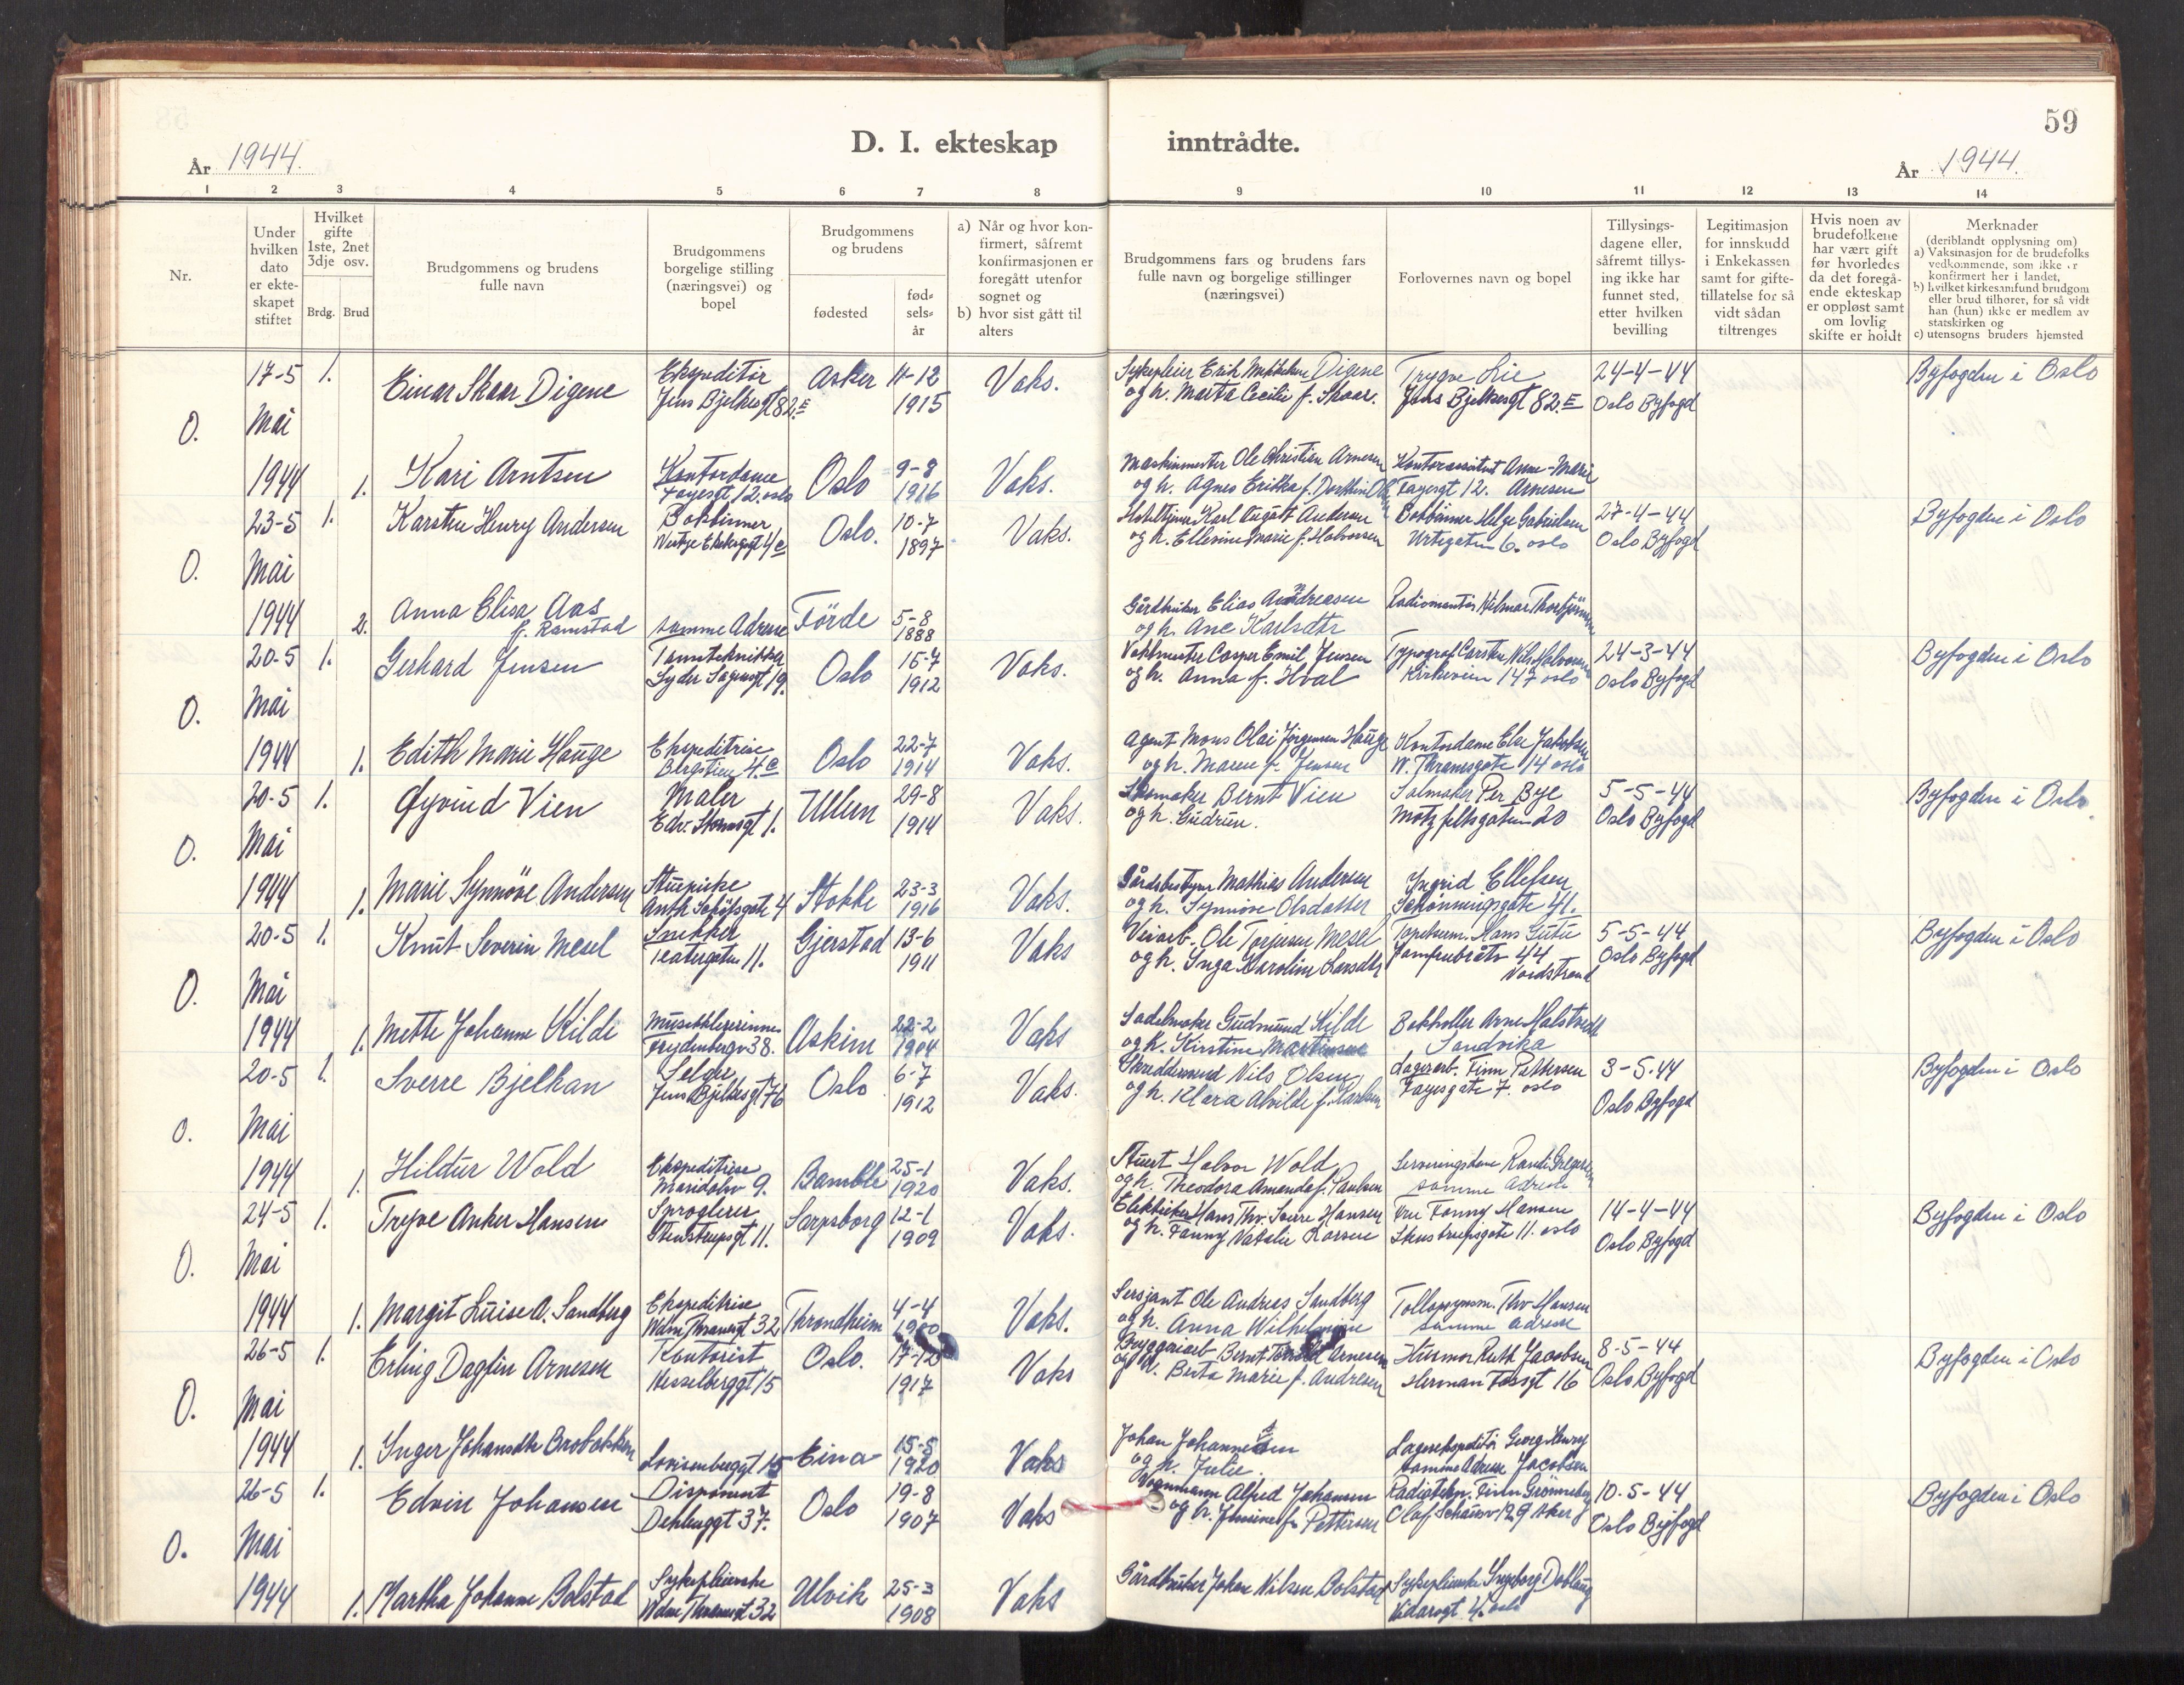 59
D. I. ekteskap inntrådte.
År 1944. År 1944.
1 2 3 4 5 6 7 8 9 10 11 12 13 14
Nr.
Under hvilken dato er ekteskapet stiftet
Hvilket gifte 1ste, 2net 3dje osv.
Brdg. Brud
Brudgommens og brudens fulle navn
Brudgommens borgelige stilling (næringsvei) og bopel
Brudgommens og brudens
fødested
fødselsår
a) Når og hvor konfirmert, såfremt konfirmasjonen er foregått utenfor sognet og
b) hvor sist gått til alters
Brudgommens fars og brudens fars fulle navn og borgelige stillinger (næringsvei)
Forlovernes navn og bopel
Tillysingsdagene eller, såfremt tillysing ikke har funnet sted, etter hvilken bevilling
Legitimasjon for innskudd i Enkekassen samt for giftetillatelse for så vidt sådan tiltrenges
Hvis noen av brudefolkene har vært gift før hvorledes da det foregående ekteskap er oppløst samt om lovlig skifte er holdt
Merknader
(deriblandt opplysning om)
a) Vaksinasjon for de brudefolks vedkommende, som ikke er konfirmert her i landet,
b) hvilket kirkesamfund brudgom eller brud tilhører, for så vidt han (hun) ikke er medlem av statskirken og
c) utensogns bruders hjemsted
O. 17-5 Mai 1944
1. Einar Skaar Digene Ekspeditør Jens Bjelkesgt 82 E Asker 11-12 1915 Vaks. Sykepleier Erik Digene og h. Marta Cecilie f. Skaar. Trygve Lie Jens Bjelkesgt 82 E 24-4-44 Oslo Byfogd Byfogden i Oslo
1. Kari Arntsen Kontordame Fayesgt 12. oslo Oslo 9-8 1916 Vaks. Maskinmester Ole Christian Arnesen og h. Agnes Erikka f. Kontorassistent Anne-Marie Arnesen Fayesgt 12.
O. 23-5 Mai 1944
1. Karsten Henry Andersen Bokbinner 4c Oslo. 10-7 1897 Vaks. Karl August Andersen og h. Ellevine Marie f. Halvorsen Bokbinner Helge Gabrielsen Urtegaten 6. oslo 27-4-44 Oslo Byfogd Byfogden i Oslo
2. Anna Elisa Aas f. Ramstad samme Adresse Förde 5-8 1888 Gårdbruker Elias Andreasen og h. Ane Karlsdtr Radiomontør Hilmar
O. 20-5 Mai 1944
1. Gerhard Jensen Tanntekniker Lyder Sagensgt 19. Oslo 15-7 1912 Vaks. Vaktmester Casper Emil Jensen og h. Anna f. Hval Typograf Carsten Nils Halvorsen Kirkeveien 147 oslo 24-3-44 Oslo Byfogd Byfogden i Oslo
1. Edith Marie Hauge Ekspeditrise Bergstien 4.c Oslo 22-7 1914 Vaks. Agent Mons Olai Jörgensen Hauge og h. Maren f. Jensen Kontordame Else Jakobsen W. Thranesgate 14 oslo
O. 20-5 Mai 1944
1. Øyvind Vien Maler Edv. Stormsgt 1. Ullern 29-8 1914 Vaks. Skomaker Bernt Vien og h. Gudrun. Salmaker Per Bye Motzfeltsgaten 20 5-5-44 Oslo Byfogd Byfogden i Oslo.
1. Marie Synnöve Andersen Stuepike Anth. Schjötsgate 4 Stokke 23-3 1916 Vaks. Gårdsbestyrer Mathias Andersen og h. Synnöve Olsdatter Ingrid Ellefsen Schönningsgate 41.
O. 20-5 Mai 1944
1. Knut Severin Mesel Snekker Teatergaten 11. Gjerstad 13-6 1911 Vaks Veiarb. Ole Torjusen Mesel og h. Inga Karoline Larsdtr Tapetserm. Hans Gutu Jomfrubråtv 44 Nordstrand 5-5-44 Oslo Byfogd Byfogden i Oslo
1. Mette Johanne Kilde Musikklærerinne Frydenbergv 38. Askim 22-2 1904 Vaks Sadelmaker Gudmund Kilde og h. Kirstine Martinsen Bokholder Arne Halstvedt Sandvika
O. 20-5 Mai 1944
1. Sverre Bjelkan Selger Jens Bjelkesgt 76 Oslo 6-7 1912 Vaks. Skreddersvend Nils Olsen og h. Klara Alvilde f. Karlsen Lagerarb. Finn Pettersen Fayesgate 7. oslo 3-5-44 Oslo Byfogd Byfogden i Oslo
1. Hildur Wold Ekspeditrise Maridalsv 9. Bamble 25-1 1920 Vaks. Stuert Halvor Wold og h. Theodora Amanda f. Paulsen Serveringsdame Randi Gregersen samme adresse
O. 24-5 Mai 1944
1. Trygve Anker Hansen Stenstrupsgt 11. Sarpsborg 12-1 1909 Vaks. Elektriker Hans Thv. Sverre Hansen og h. Fanny Natalie Larsen Fru Fanny Hansen Stenstrupsgate 11. oslo 14-4-44 Oslo Byfogd Byfogden i Oslo
1. Margit Luise A. Sandberg Ekspeditrise Wdm Thranesgt 32 Throndheim 4-4 1900 Vaks. Sersjant Ole Andreas Sandberg og h. Anna Wilhelmine Tollopsynsm. Thv Hansen samme adresse
O. 26-5 Mai 1944
1. Erling Dagfin Arnesen Kontorist Hesselberggt 15 Oslo. 17-12 1917 Vaks Bryggeriarb Bernt Arnesen og h. Berta Marie f. Andresen Husmor Ruth Jacobsen Herman Fossgt 16 8-5-44 Oslo Byfogd Byfogden i Oslo
1. Inger Johansdtr Brobakken Lovisenberggt 15 Eina 15-5 1920 Vaks Johan Johannessen og h. Julie. Lagerekspeditör Georg Henry Jacobsen samme adresse
O. 26-5 Mai 1944
1. Edvin Johansen Disponent Dehlenggt 37. Oslo 19-8 1907 Vaks Vognmann Alfred Johansen og h. f. Pettersen Olaf Schousv 129 Aker 10-5-44 Oslo Byfogd Byfogden i Oslo
1. Martha Johanne Bolstad Sykepleierske Wdm Thranesgt 32 Ulvik 25-3 1908 Vaks Gårdbruker Johan Nilsen Bolstad Sykepleierske Ingborg Doblaug Vidarsgt 4. oslo